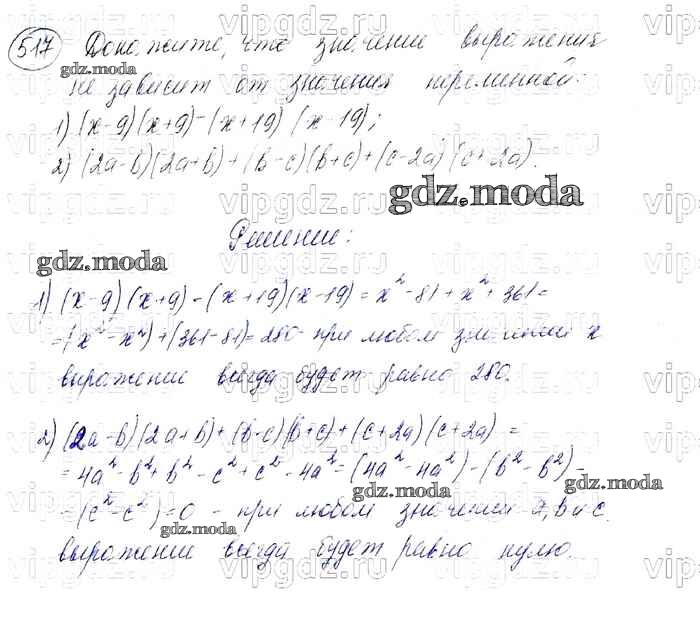 517 Докажите, что значение выражения
не зависит от значения переменной:
1) (x-9)(x+9)-(x+19)(x-19);
2) (2a-b)(2a+b)+(b-c)(b+c)+(c-2a)(c+2a).
Решение:
1) (x-9)(x+9)-(x+19)(x-19)=x²-81+x²+361=
=(x²-x²)+(361-81)=280- при любом значении x
выражение всегда будет равно 280.
2) (2a-b)(2a+b)+(b-c)(b+c)+(c+2a)(c+2a)=
=4a²-b²+b²-c²+c²-4a²=(4a²-4a²)-(b²-b²)-
-(c²-c²)=0 - при любом значении a, b и c
выражении всегда будет равно нулю.
gdz.moda
vipgdz.ru